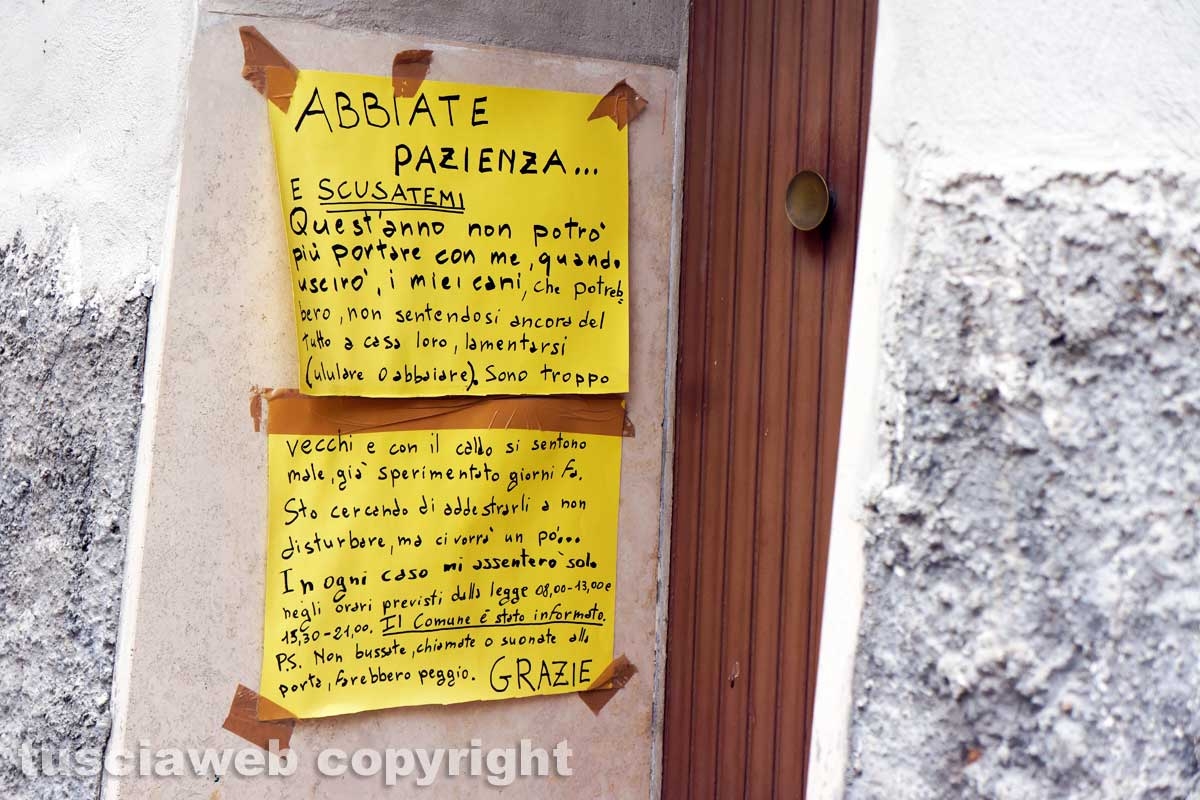 ABBIATE
PAZIENZA...
E SCUSATEMI
Quest'anno non potrò
più portare con me, quando
uscirò, i miei cani, che potreb
bero, non sentendosi ancora del
tutto a casa loro, lamentarsi
(ululare o abbaiare). Sono troppo
vecchi e con il caldo si sentono
male, già sperimentato giorni fa.
Sto cercando di addestrarli a non
disturbare, ma ci vorrà un pó...
In ogni caso mi assenterò solo
negli orari previsti dalla legge 08,00-13,00 e
15,30-21,00. Il Comune è stato informato.
P.S. Non bussate, chiamate o suonate alla
porta, farebbero peggio. GRAZIE
tusciaweb copyright